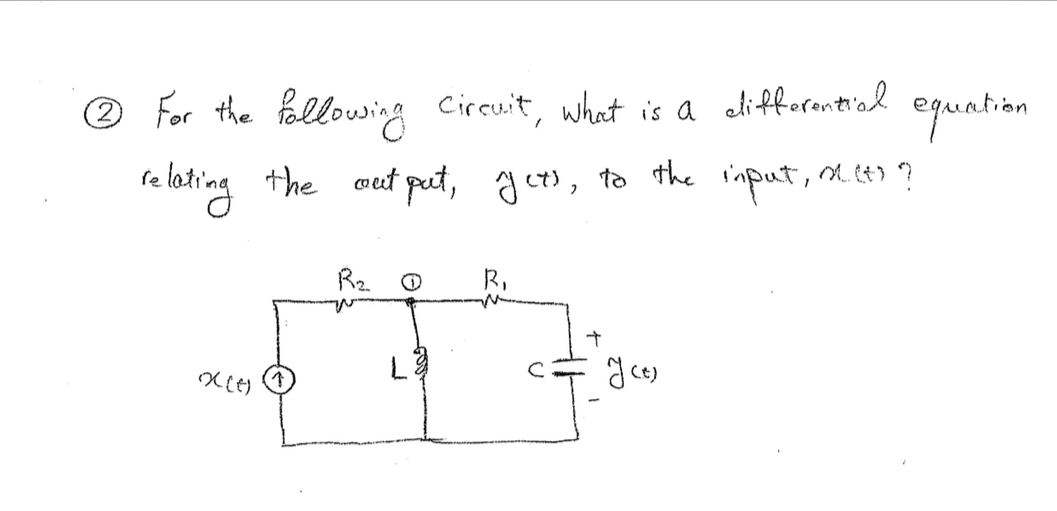 ② For the following circuit, what is a differential equation
relating the output, y(t), to the input, x(t) ?
R₂ ① R₁
+
x(t) ↑ L C y(t)
-